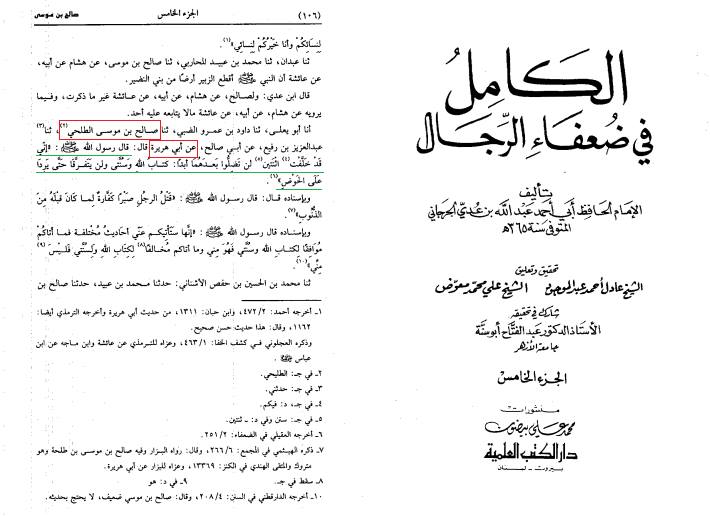 (١٠٦) الجزء الخامس صالح بن موسى
لِنِسَائِكُمْ وأنا خَيْرُكُمْ لِنِسائِي»(١).
ثنا عبدان، ثنا محمد بن عبيد المحاربي، ثنا صالح بن موسى، عن هشام عن أبيه،
عن عائشة أن النبي ﷺ أقطع الزبير أرضًا من بني النضير.
قال ابن عدي: ولصالح، عن هشام، عن أبيه، عن عائشة غير ما ذكرت، وفيما
يرويه عن هشام، عن أبيه، عن عائشة مالا يتابعه عليه أحد.
أنا أبو يعلى، ثنا داود بن عمرو الضبي، ثنا صالح بن موسى الطلحي(٢)، ثنا(٣)
عبدالعزيز بن رفيع، عن أبي صالح، عن أبي هريرة قال: قال رسول الله ﷺ: «إِنِّي
قَدْ خَلَّفْتُ(٤) اثْنَتَين(٥) لن تَضِلُّوا بَعدَهُمَا أبدًا: كتابَ الله وسُنَّتي ولن يَتفرقَا حتَّى يَرِدَا
عَلى الحَوْضِ»(٦).
وبإسناده قال: قال رسول الله ﷺ: «قَتْلُ الرجلِ صَبْرًا كفَّارةٌ لِما كانَ قَبلَهُ مِن
الذُّنُوبِ»(٧).
وبإسناده قال: قال رسول الله ﷺ: «إنَّها سَتَأتيكم عَنِّي أحَاديثُ مُخْتلفة فما أتاكُم
مُوَافِقًا لكتابِ الله وسُنَّتي فَهُوَ مِني وما أتاكم مُخالفًا(٨) لِكتابِ الله ولِسُنَّتي فَلَيسَ(٩)
مِنِّي»(١٠).
ثنا محمد بن الحسين بن حفص الأشناني: حدثنا محمد بن عبيد، حدثنا صالح بن
١ـ أخرجه أحمد: ٤٧٢/٢، وابن حبان: ١٣١١، من حديث أبي هريرة وأخرجه الترمذي أيضا:
١١٦٢، وقال: هذا حديث حسن صحيح.
وذكره العجلوني في كشف الخفا: ٤٦٣/١، وعزاه للترمذي عن عائشة وابن ماجه عن ابن
عباس ﷺ.
٢ـ في جـ: الطليحي.
٣ـ في جـ: حدثني.
٤ـ في جـ، د: فيكم.
٥ـ في جـ: سنن وفي د: ـ ثنتين.
٦ـ أخرجه العقيلي في الضعفاء: ٢٥١/٢.
٧ـ ذكره الهيثمي في المجمع: ٢٦٦/٦، وقال: رواه البزار وفيه صالح بن موسى بن طلحة وهو
متروك والمتقى الهندي في الكنز: ١٣٣٦٩، وعزاه للبزار عن أبي هريرة.
٨ـ سقط في جـ. ٩ـ في د: هو
١٠ـ أخرجه الدارقطني في السنن: ٢٠٨/٤، وقال: صالح بن موسي ضعيف، لا يحتج بحديثه.
الكامل
في ضعفاء الرجال
تأليف
الإمام الحافظ أبي أحمد عبد الله بن عدي الجرجاني
المتوفى سنة ٣٦٥هـ
تحقيق وتعليق
الشيخ عادل أحمد عبد الموجود الشيخ علي محمد معوض
شارك في تحقيقه
الأستاذ الدكتور عبد الفتاح أبو سنة
جامعة الأزهر
الجزء الخامس
منشورات
محمد علي بيضون
دار الكتب العلمية
بيروت - لبنان